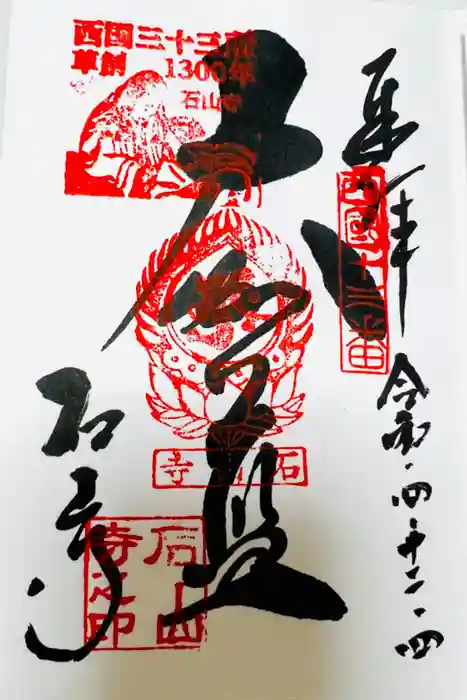 奉拝
西國十三番
令和・四・十二・四
西国三十三所
草創 1300年
石山寺
大伽藍
石山寺
石山寺
石山寺之印